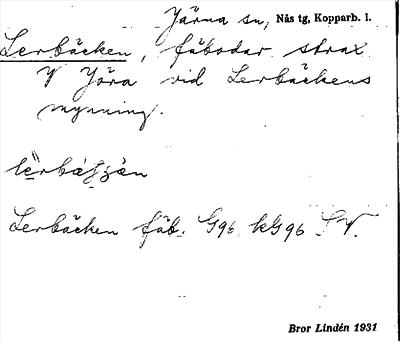 Järna sn, Nås tg, Kopparb. l.
Lerbäcken, fäbodar strax
V Jöra vid Lerbäckens
mynning.
Lerbäcken fäb. G96 kG96 SV.
Bror Lindén 1931